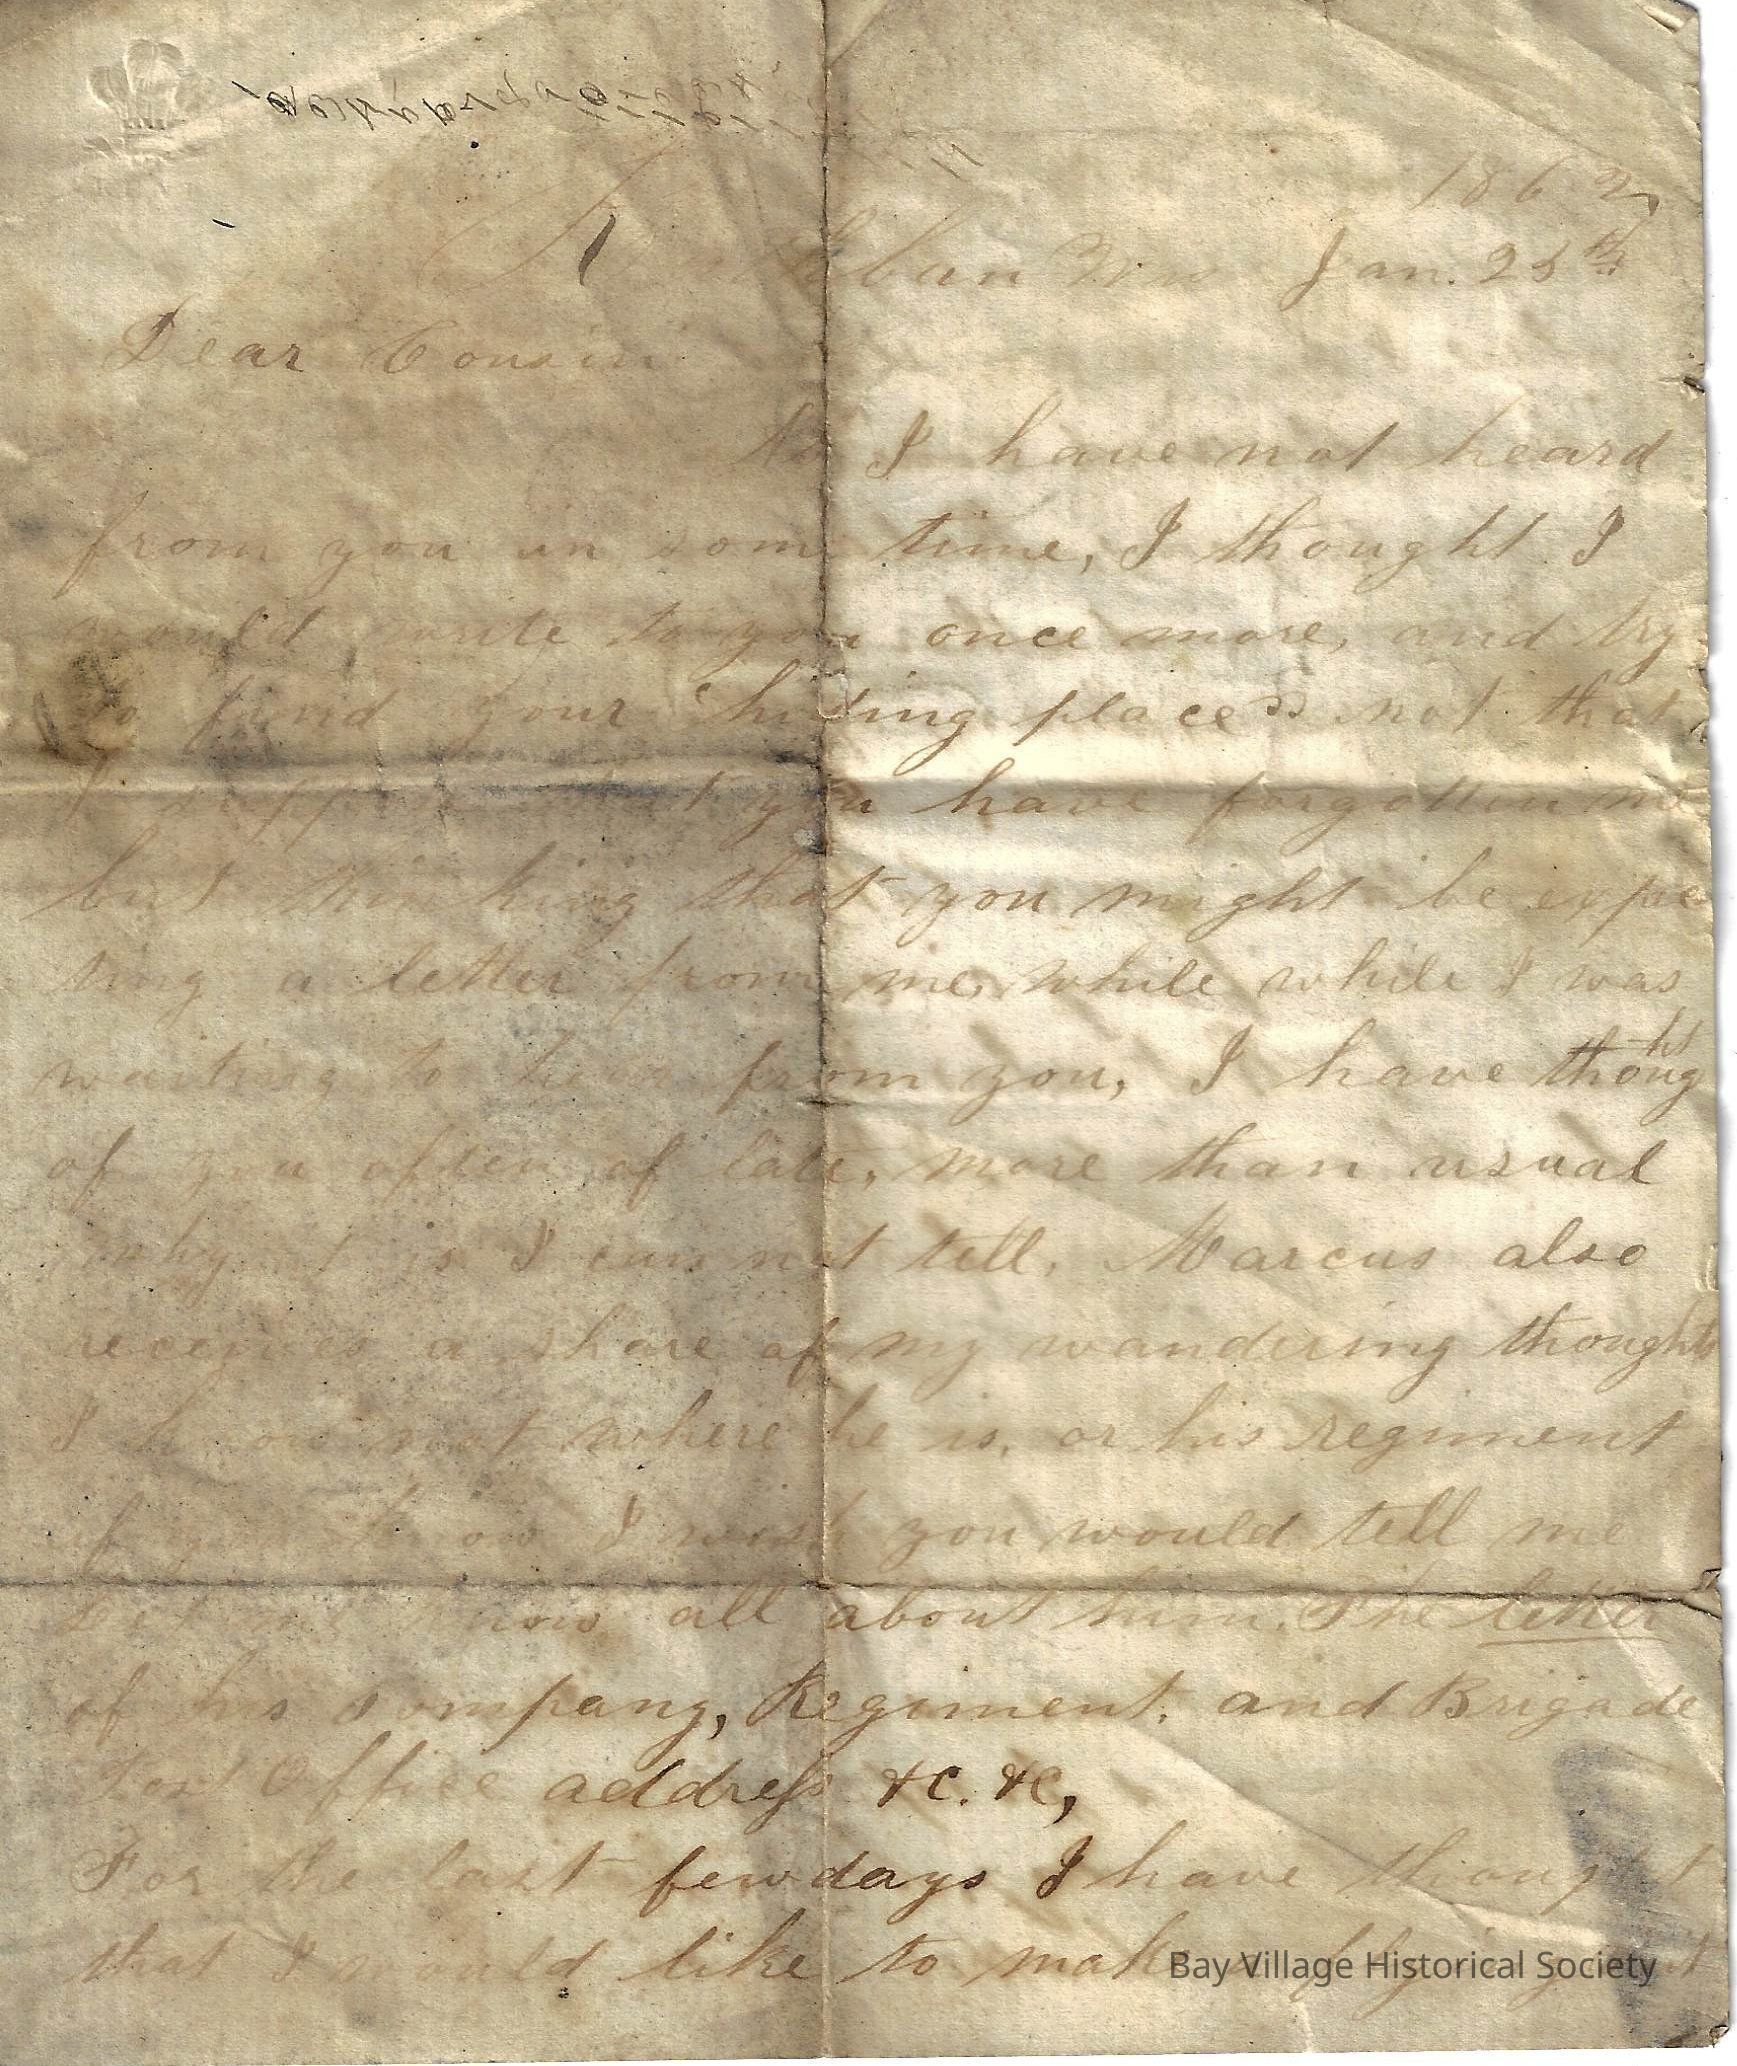 186
Jan. 25th
Dear Cousin
As I have not heard
from you in some time, I thought I
would write to you once more, and try
to find your "hiding place" not that
I suppose that you have forgotten me
but thinking that you might be expec
ting a letter from me, while while I was
waiting to hear from you, I have thought
of you often of late, more than usual
why it is I can not tell, Marcus also
receives a share of my wandering thoughts
I know not where he is, or his regiment
if you know I wish you would tell me
Let me know all about him, The letter
of his company, Regiment, and Brigade
Post Office address &C. &C,
For the last few days I have thought
that I would like to make
Bay Village Historical Society